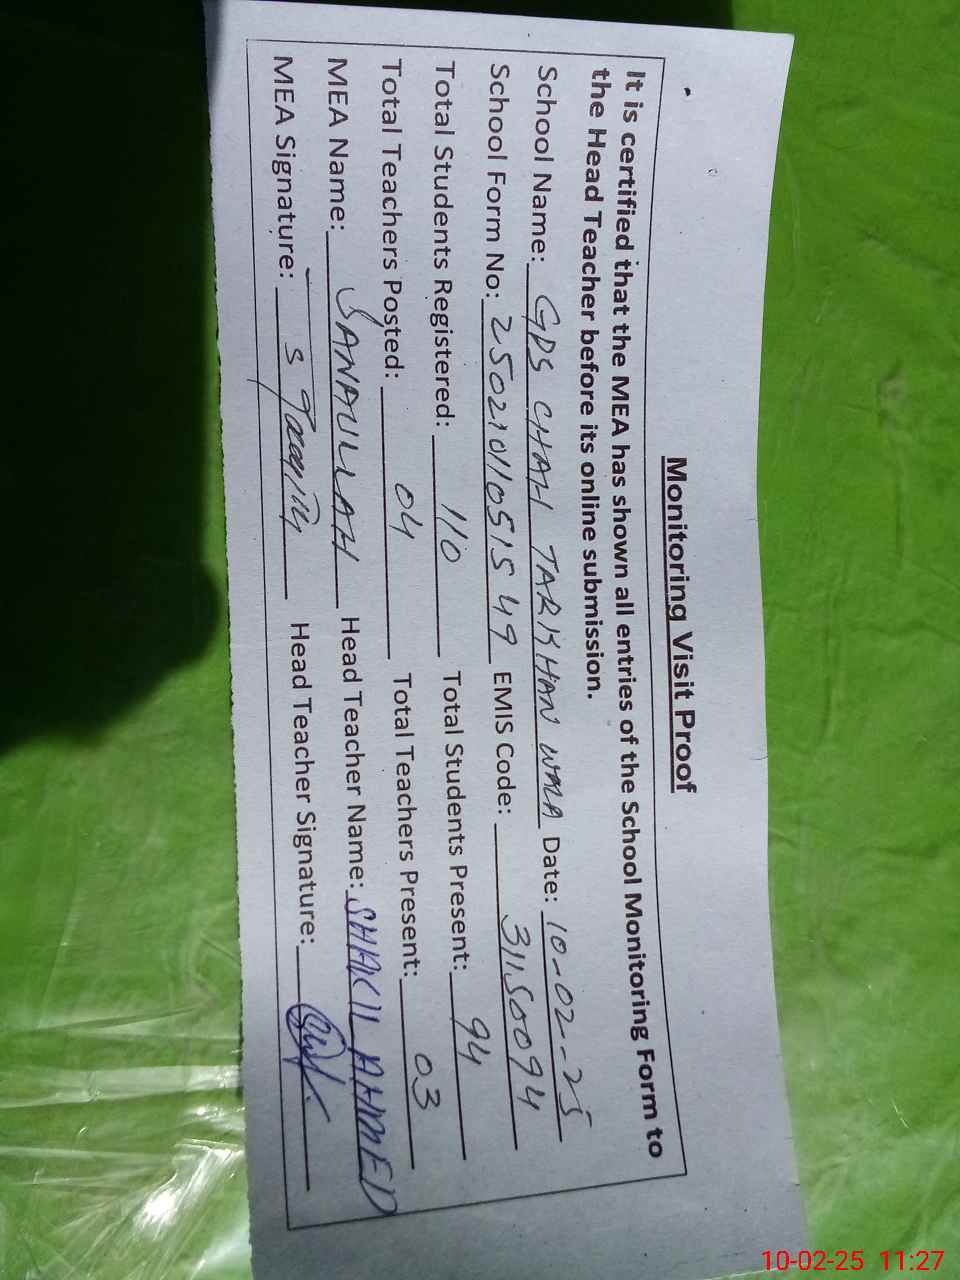 Monitoring Visit Proof
It is certified that the MEA has shown all entries of the School Monitoring Form to
the Head Teacher before its online submission.
School Name: GPS CHAH TARKHAN WALA Date: 10-02-25
School Form No: 250210110515 49 EMIS Code: 31150094
Total Students Registered: 110 Total Students Present: 94
Total Teachers Posted: 04 Total Teachers Present: 03
MEA Name: SANAULLAH Head Teacher Name: SHAKIL AHMED
MEA Signature: Head Teacher Signature:
10-02-25 11:27